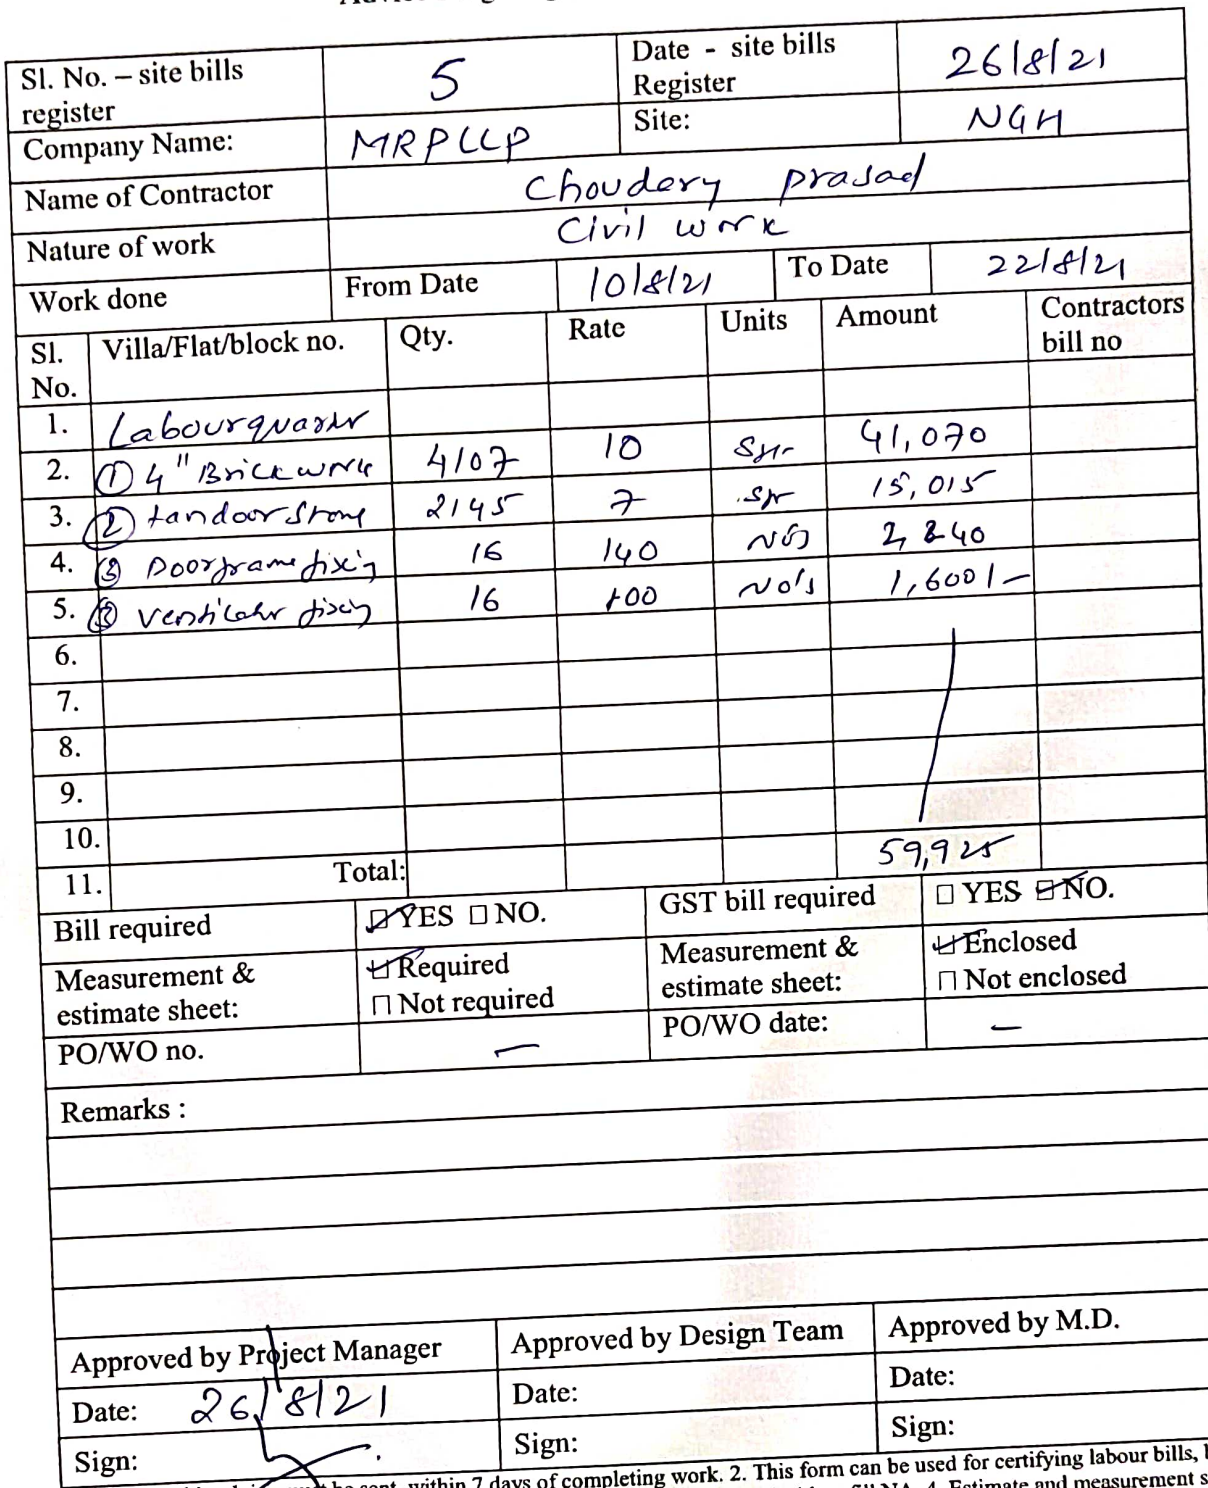 Sl. No. – site bills register 5 Date - site bills Register 26/8/21
Company Name: MRPLLP Site: NGH
Name of Contractor Choudery prasad
Nature of work Civil work
Work done From Date 10/8/21 To Date 22/8/21
Sl. No. Villa/Flat/block no. Qty. Rate Units Amount Contractors bill no
1. Labourquarter
2. ① 4" Brickwork 4107 10 Sft 41,070
3. ② tandoor stone 2145 7 Sft 15,015
4. ③ Doorframe fixing 16 140 No's 2,240
5. ventilator fixing 16 100 No's 1,600/-
6.
7.
8.
9.
10.
11. Total: 59,925
Bill required ☑ YES □ NO. GST bill required □ YES ☑ NO.
Measurement & estimate sheet: ☑ Required □ Not required Measurement & estimate sheet: ☑ Enclosed □ Not enclosed
PO/WO no. — PO/WO date: —
Remarks :
Approved by Project Manager Approved by Design Team Approved by M.D.
Date: 26/8/21 Date: Date:
Sign: Sign: Sign:
within 7 days of completing work. 2. This form can be used for certifying labour bills,
4. Estimate and measurement